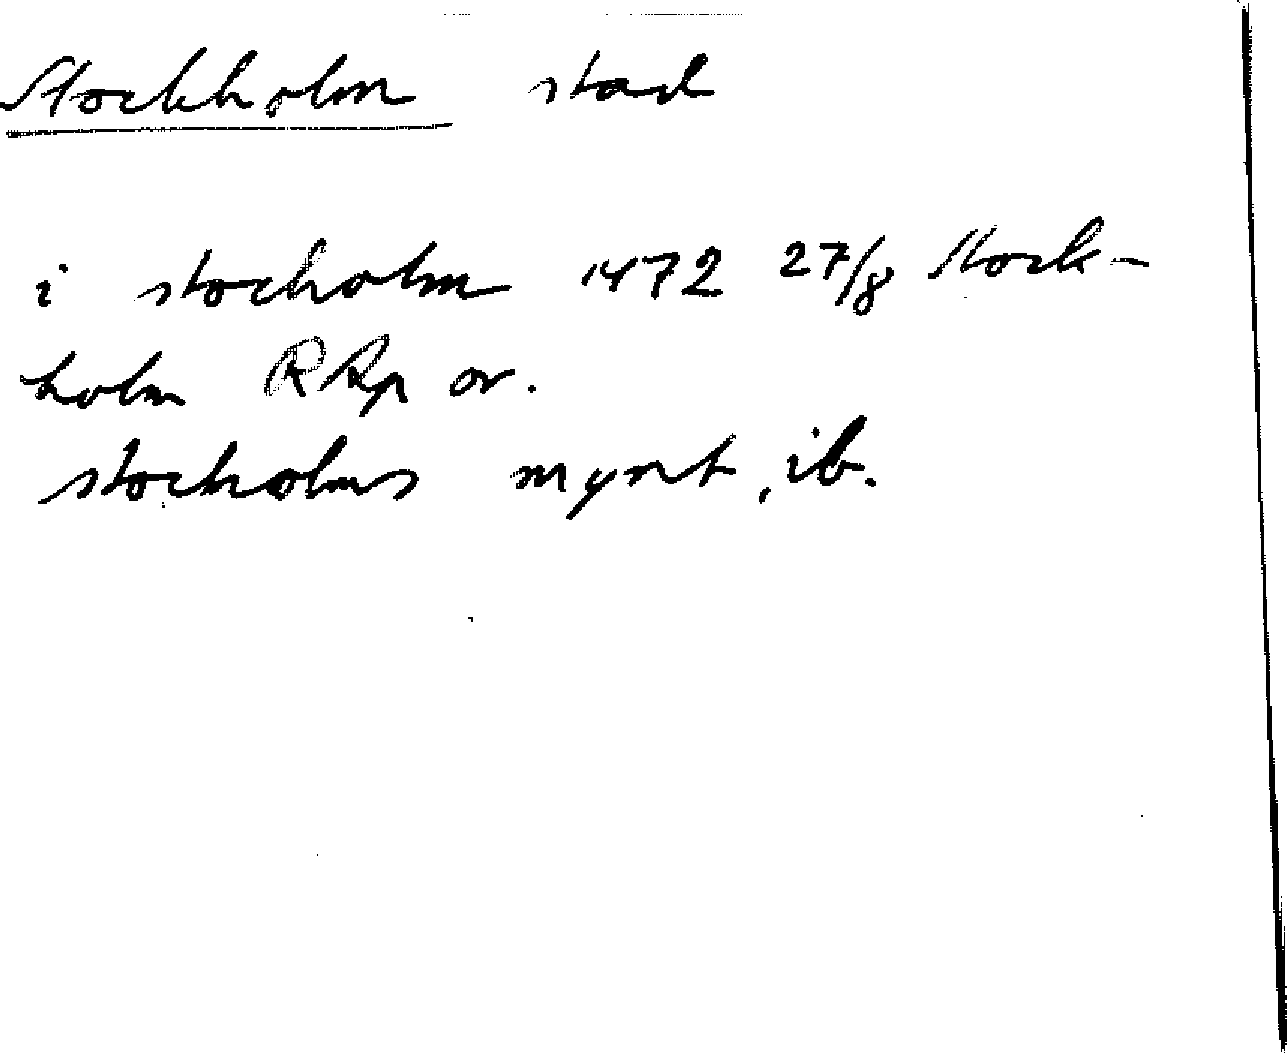 Stockholm stad
i stocholm 1472 27/8 Stock-
holm RAp or.
stocholms mynt, ib.